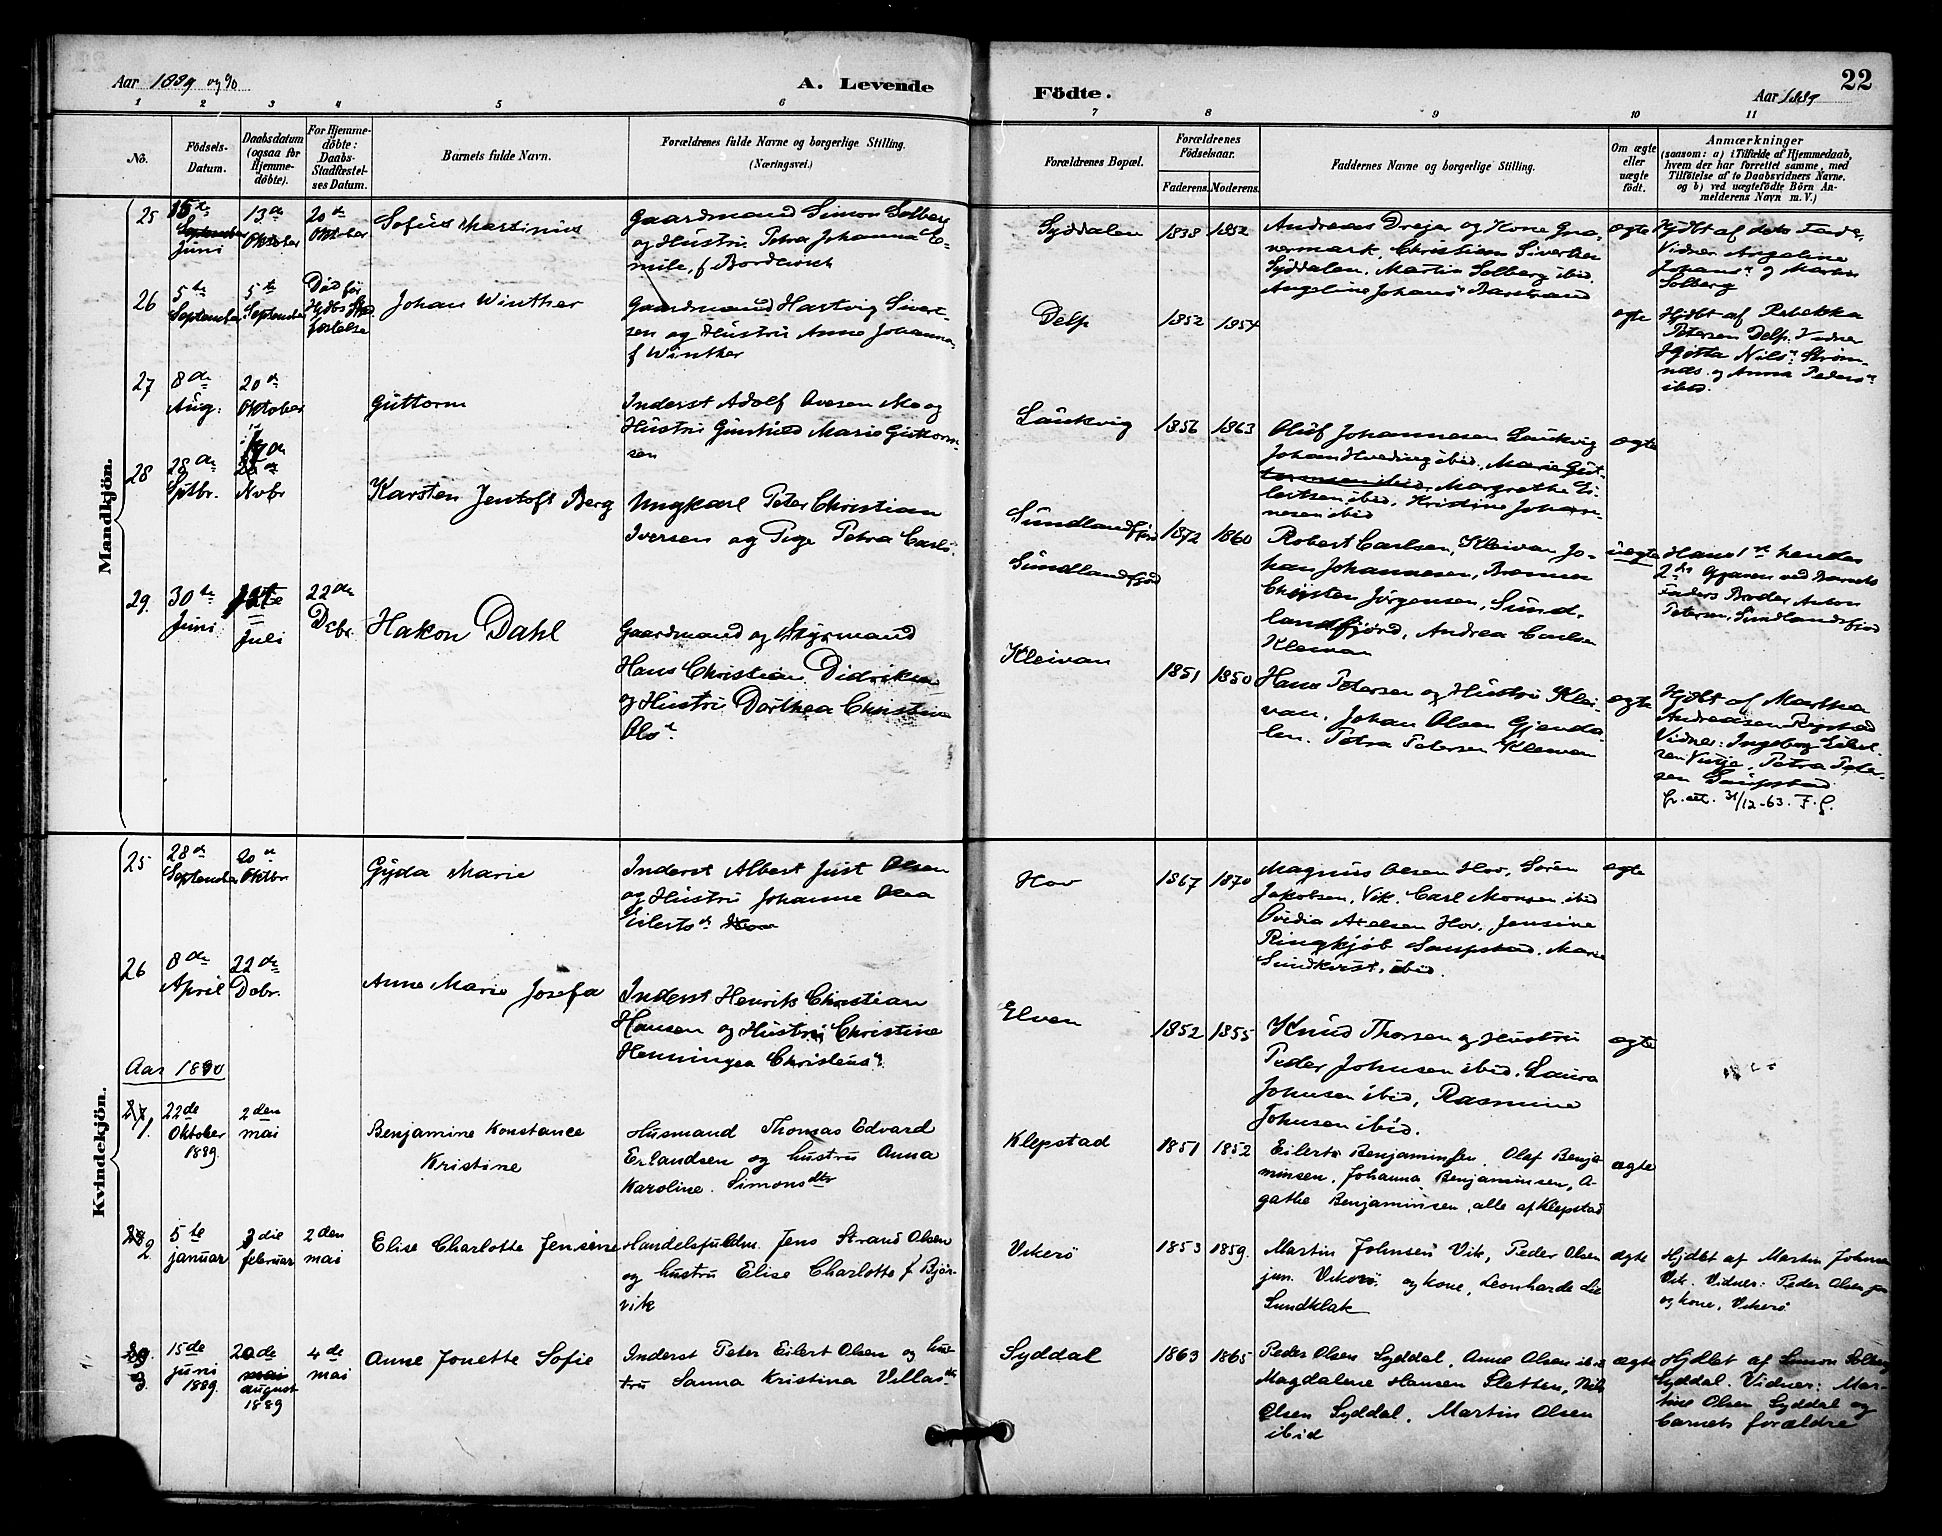 Aar 1889 og 90
A. Levende
Födte.
Aar 1889
22
1 2 3 4 5 6 7 8 9 10 11
No.
Födsels-
Datum.
Daabsdatum
(ogsaa for
Hjemme-
döbte).
For Hjemme-
döbte:
Daabs-
Stadfæstel-
ses Datum.
Barnets fulde Navn.
Forældrenes fulde Navne og borgerlige Stilling.
(Næringsvei.)
Forældrenes Bopæl.
Forældrenes
Födselsaar.
Faderens. Moderens.
Faddernes Navne og borgerlige Stilling.
Om ægte
eller
uægte
födt.
Anmærkninger
(saasom: a) i Tilfælde af Hjemmedaab,
hvem der har forrettet samme, med
Tilföielse af to Daabsvidners Navne,
og b) ved uægtefödte Börn An-
melderens Navn m. V.)
Mandkjön.
25
15de
September
Juni
13de
Oktober
20de
Oktober
Sofus Martinius
Gaardmand Simon Solberg
og Hustru Petra Johanna E-
milie, f
Syddalen
1838 1852
Andreas Drejer og Kone
Christian Sivertsen
Syddalen. Martin Solberg ibid.
Angeline Johans
ægte
Hjdbt af
Vidner Angeline
Johans og Martin
Solberg
26
5te
September
5te
September
Död för
Hjdbs Stad
festelse
Johan Winther
Gaardmand Hartvig Siver-
sen og Hustru Anne Johanna
f Winther
Delp
1852 1854
ægte
Hjdbt af Rebekka
Petersen Delp. Vidner
Nils
og Anna Peders
ibid.
27
8de
Aug.
20de
Oktober
Guttorm
Inderst Adolf Ovesen Mo og
Hustru Gunhild Marie Guttorm-
sen
Laukvig
1856 1863
Oluf Johannesen Laukvig
Johan Hveding ibid, Marie Gut-
tormsen ibid, Margrethe Ei-
lertsen ibid. Kristine Johan-
nesen ibid
ægte
28
28de
Sptbr.
Novbr
Karsten Jentoft Berg
Ungkarl Peter Christian
Iversen og Pige Petra Carls.
Sundlandsfjord
Sundlandsfjord
1872 1860
Robert Carlsen, Kleivan Jo-
han Johannesen, Brenna
Christen Jörgensen, Sund-
landsfjord, Andrea Carlsen
Kleivan
uægte
Hans 1ste hendes
2den Gjæven ved Barnets
Faders Broder Anton
Petersen, Sundlandsfjord
29.
30te
Juni
Juli
22de
Dcbr.
Hakon Dahl
Gaardmand og Styrmand
Hans Christian Didriksen
og Hustru Dorthea Christine
Ols
Kleivan
1851 1850
Hans Petersen og Hustru Klei-
van. Johan Olsen Gjenda-
len. Petra Petersen Kleivan
ægte
Hjdbt af Martha
Andreasen Rystad
Vidner: Ingeborg Eilert-
sen Petra Peter-
sen Saupstad
31/12-63. F.G.
Kvindekjön.
25
28de
September
20de
Oktbr
Gyda Marie
Inderst Albert Just Olsen
og Hustru Johanne Olea
Eilerts Hov
Hov
1867 1870
Magnus Olsen Hov, Sören
Jakobsen, Vik. Carl Monsen ibid
Ovidia Axelsen Hov. Jensine
Ringkjöb Saupstad. Marie
Sundkvist, ibid.
ægte
26
8de
April
22de
Dcbr.
Anne Marie Josefa
Inderst Henrik Christian
Hansen og Hustru Christine
Henningea Christens
Elven
1852 1855
Knud Thorsen og Hustru
Peder Johnsen ibid. Laura
Johnsen ibid, Rasmine
Johnsen ibid.
ægte
Aar 1890
1.
22de
Oktober
1889
2den
mai
Benjamine Konstance
Kristine
Husmand Thomas Edvard
Erlandsen og hustru Anna
Karoline Simonsdtr
Klepstad
1851 1852
Eilert Benjaminsen. Olaf Benja-
minsen, Johanna Benjaminsen, A-
gathe Benjaminsen, alle af Klepstad
ægte
2
5te
januar
3die
februar
2den
mai
Elise Charlotte Jensine
Handelsfuldm. Jens Strand Olsen
og hustru Elise Charlotte f Björ-
vik
Vikerö
1853 1859.
Martin Johnsen Vik, Peder Olsen
jun. Vikerö og kone, Leonharde Lie
Sundklak
ægte
Hjdbt af Martin Johnsen
Vik. Vidner: Peder Olsen jun
og kone, Vikerö
3.
15de
juni
1889.
20de
mai
august
1889
4de
mai
Anne Jonette Sofie
Inderst Peter Eilert Olsen og hus-
tru Sanna Kristina Villasdtr
Syddal
1863 1865
Peder Olsen Syddal, Anne Olsen ibid
Magdalene Hansen Sletten, Nils
Olsen Syddal, Martin Olsen
ibid
ægte
Hjdbt af Simon Solberg
Syddal. Vidner: Mar-
tine Olsen Syddal og
barnets forældre